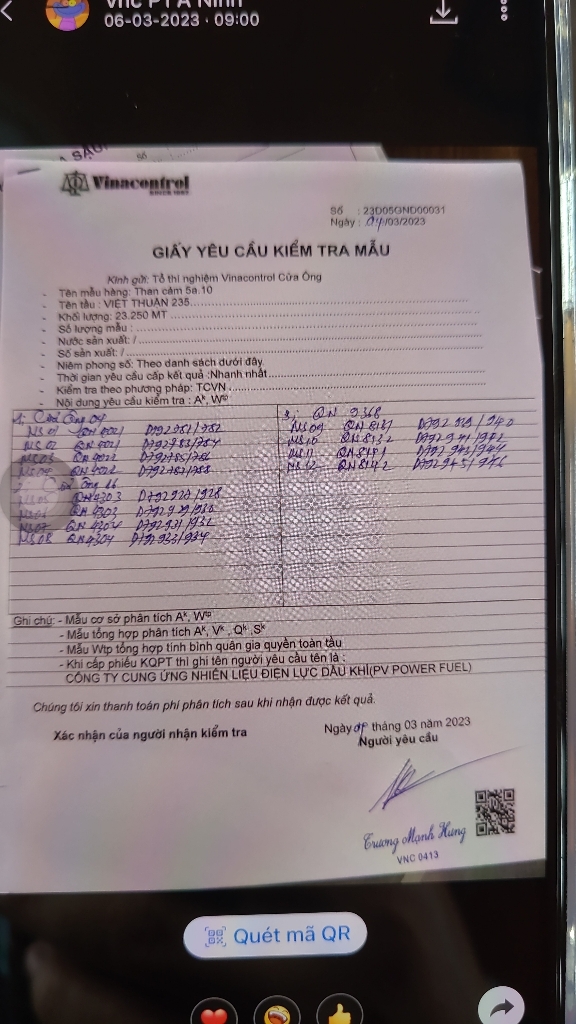 Vnc PT A Ninh
06-03-2023 · 09:00
Số
Vinacontrol
SINCE 1957
Số : 23D05GND00031
Ngày : 04/03/2023
GIẤY YÊU CẦU KIỂM TRA MẪU
Kính gửi: Tổ thí nghiệm Vinacontrol Cửa Ông
- Tên mẫu hàng: Than cám 5a.10
- Tên tàu : VIỆT THUẬN 235
- Khối lượng: 23.250 MT
- Số lượng mẫu :
- Nước sản xuất: /
- Số sản xuất: /
- Niêm phong số: Theo danh sách dưới đây
- Thời gian yêu cầu cấp kết quả :Nhanh nhất
- Kiểm tra theo phương pháp: TCVN
- Nội dung yêu cầu kiểm tra : Aᵏ, Wᵗᵖ
QN 9368
NS 09 QN 8131 D792939/940
NS 10 QN 8132 D792941/942
NS 11 D792943/944
NS 12 QN 8142 D792945/946
NS 02 D792783/784
NS 03 D792785/786
NS 05 QN 4303 D792927/928
NS 06 QN 4303 D792929/930
NS 07 QN 4304 D792931/932
NS 08 QN 4304 D792933/934
Ghi chú: - Mẫu cơ sở phân tích Aᵏ, Wᵗᵖ
- Mẫu tổng hợp phân tích Aᵏ, Vᵏ , Qᵏ, Sᵏ
- Mẫu Wtp tổng hợp tính bình quân gia quyền toàn tàu
- Khi cấp phiếu KQPT thì ghi tên người yêu cầu tên là :
CÔNG TY CUNG ỨNG NHIÊN LIỆU ĐIỆN LỰC DẦU KHÍ(PV POWER FUEL)
Chúng tôi xin thanh toán phí phân tích sau khi nhận được kết quả.
Ngày 04 tháng 03 năm 2023
Xác nhận của người nhận kiểm tra
Người yêu cầu
Trương Mạnh Hưng
VNC 0413
Quét mã QR